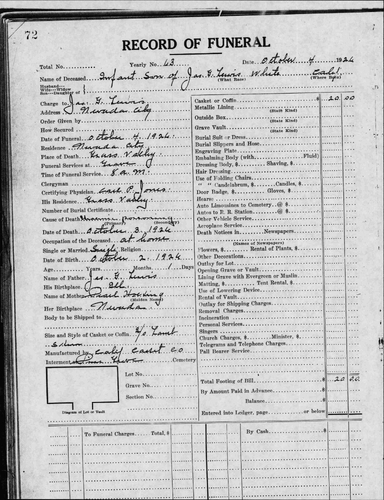 72
RECORD OF FUNERAL
Total No. Yearly No. 63 Date October 4 1926
Name of Deceased Infant Son of Jas. G. Lewis White Calif.
(What Race) (Where Born)
Husband—
Wife—Widow
Son—Daughter of
Charge to Jas. G. Lewis
Address Nevada City
Order Given by
How Secured
Date of Funeral October 4 1926
Residence Nevada City
Place of Death Grass Valley
Funeral Services at Grave
Time of Funeral Services 8 a.m.
Clergyman
Certifying Physician Carl P. Jones
His Residence Grass Valley
Number of Burial Certificate
Cause of Death poisoning
Date of Death October 3 1926
Occupation of the Deceased at home
Single or Married Single Religion
Date of Birth October 2 1926
Age Years Months 1 Days
Name of Father Jas. G. Lewis
His Birthplace Ill
Name of Mother Hazel
(Maiden Name)
Her Birthplace Nevada
Body to be Shipped to
Size and Style of Casket or Coffin 2/0 Lamb
Manufactured by Calif Casket Co
Interment Pine Grove Cemetery
Lot No.
Grave No.
Section No.
Diagram of Lot or Vault
Casket or Coffin $ 20 00
Metallic Lining
(State Kind)
Outside Box
(State Kind)
Grave Vault
(State Kind)
Burial Suit or Dress
Burial Slippers and Hose
Engraving Plate
Embalming Body (with Fluid)
Dressing Body, $ Shaving, $
Hair Dressing
Use of Folding Chairs
" " Candelabrum, $ Candles, $
Door Badge, $ Gloves, $
Hearse
Auto Limousines to Cemetery, @ $
Autos to R. R. Station, @ $
Other Vehicle Service
Aeroplane Service
Death Notices in Newspapers
(Names of Newspapers)
Flowers, $ Rental of Plants, $
Other Decorations
Outlay for Lot
Opening Grave or Vault
Lining Grave with Evergreen or Muslin
Matting, $ Tent Rental, $
Use of Lowering Device
Rental of Vault
Outlay for Shipping Charges
Removal Charges
Incineration
Personal Services
Singers
Church Charges, $ Minister, $
Telegrams and Telephone Charges
Pall Bearer Service
Total Footing of Bill $ 20 00
By Amount Paid in Advance
Balance
Entered into Ledger, page or below
To Funeral Charges Total $ By Cash $